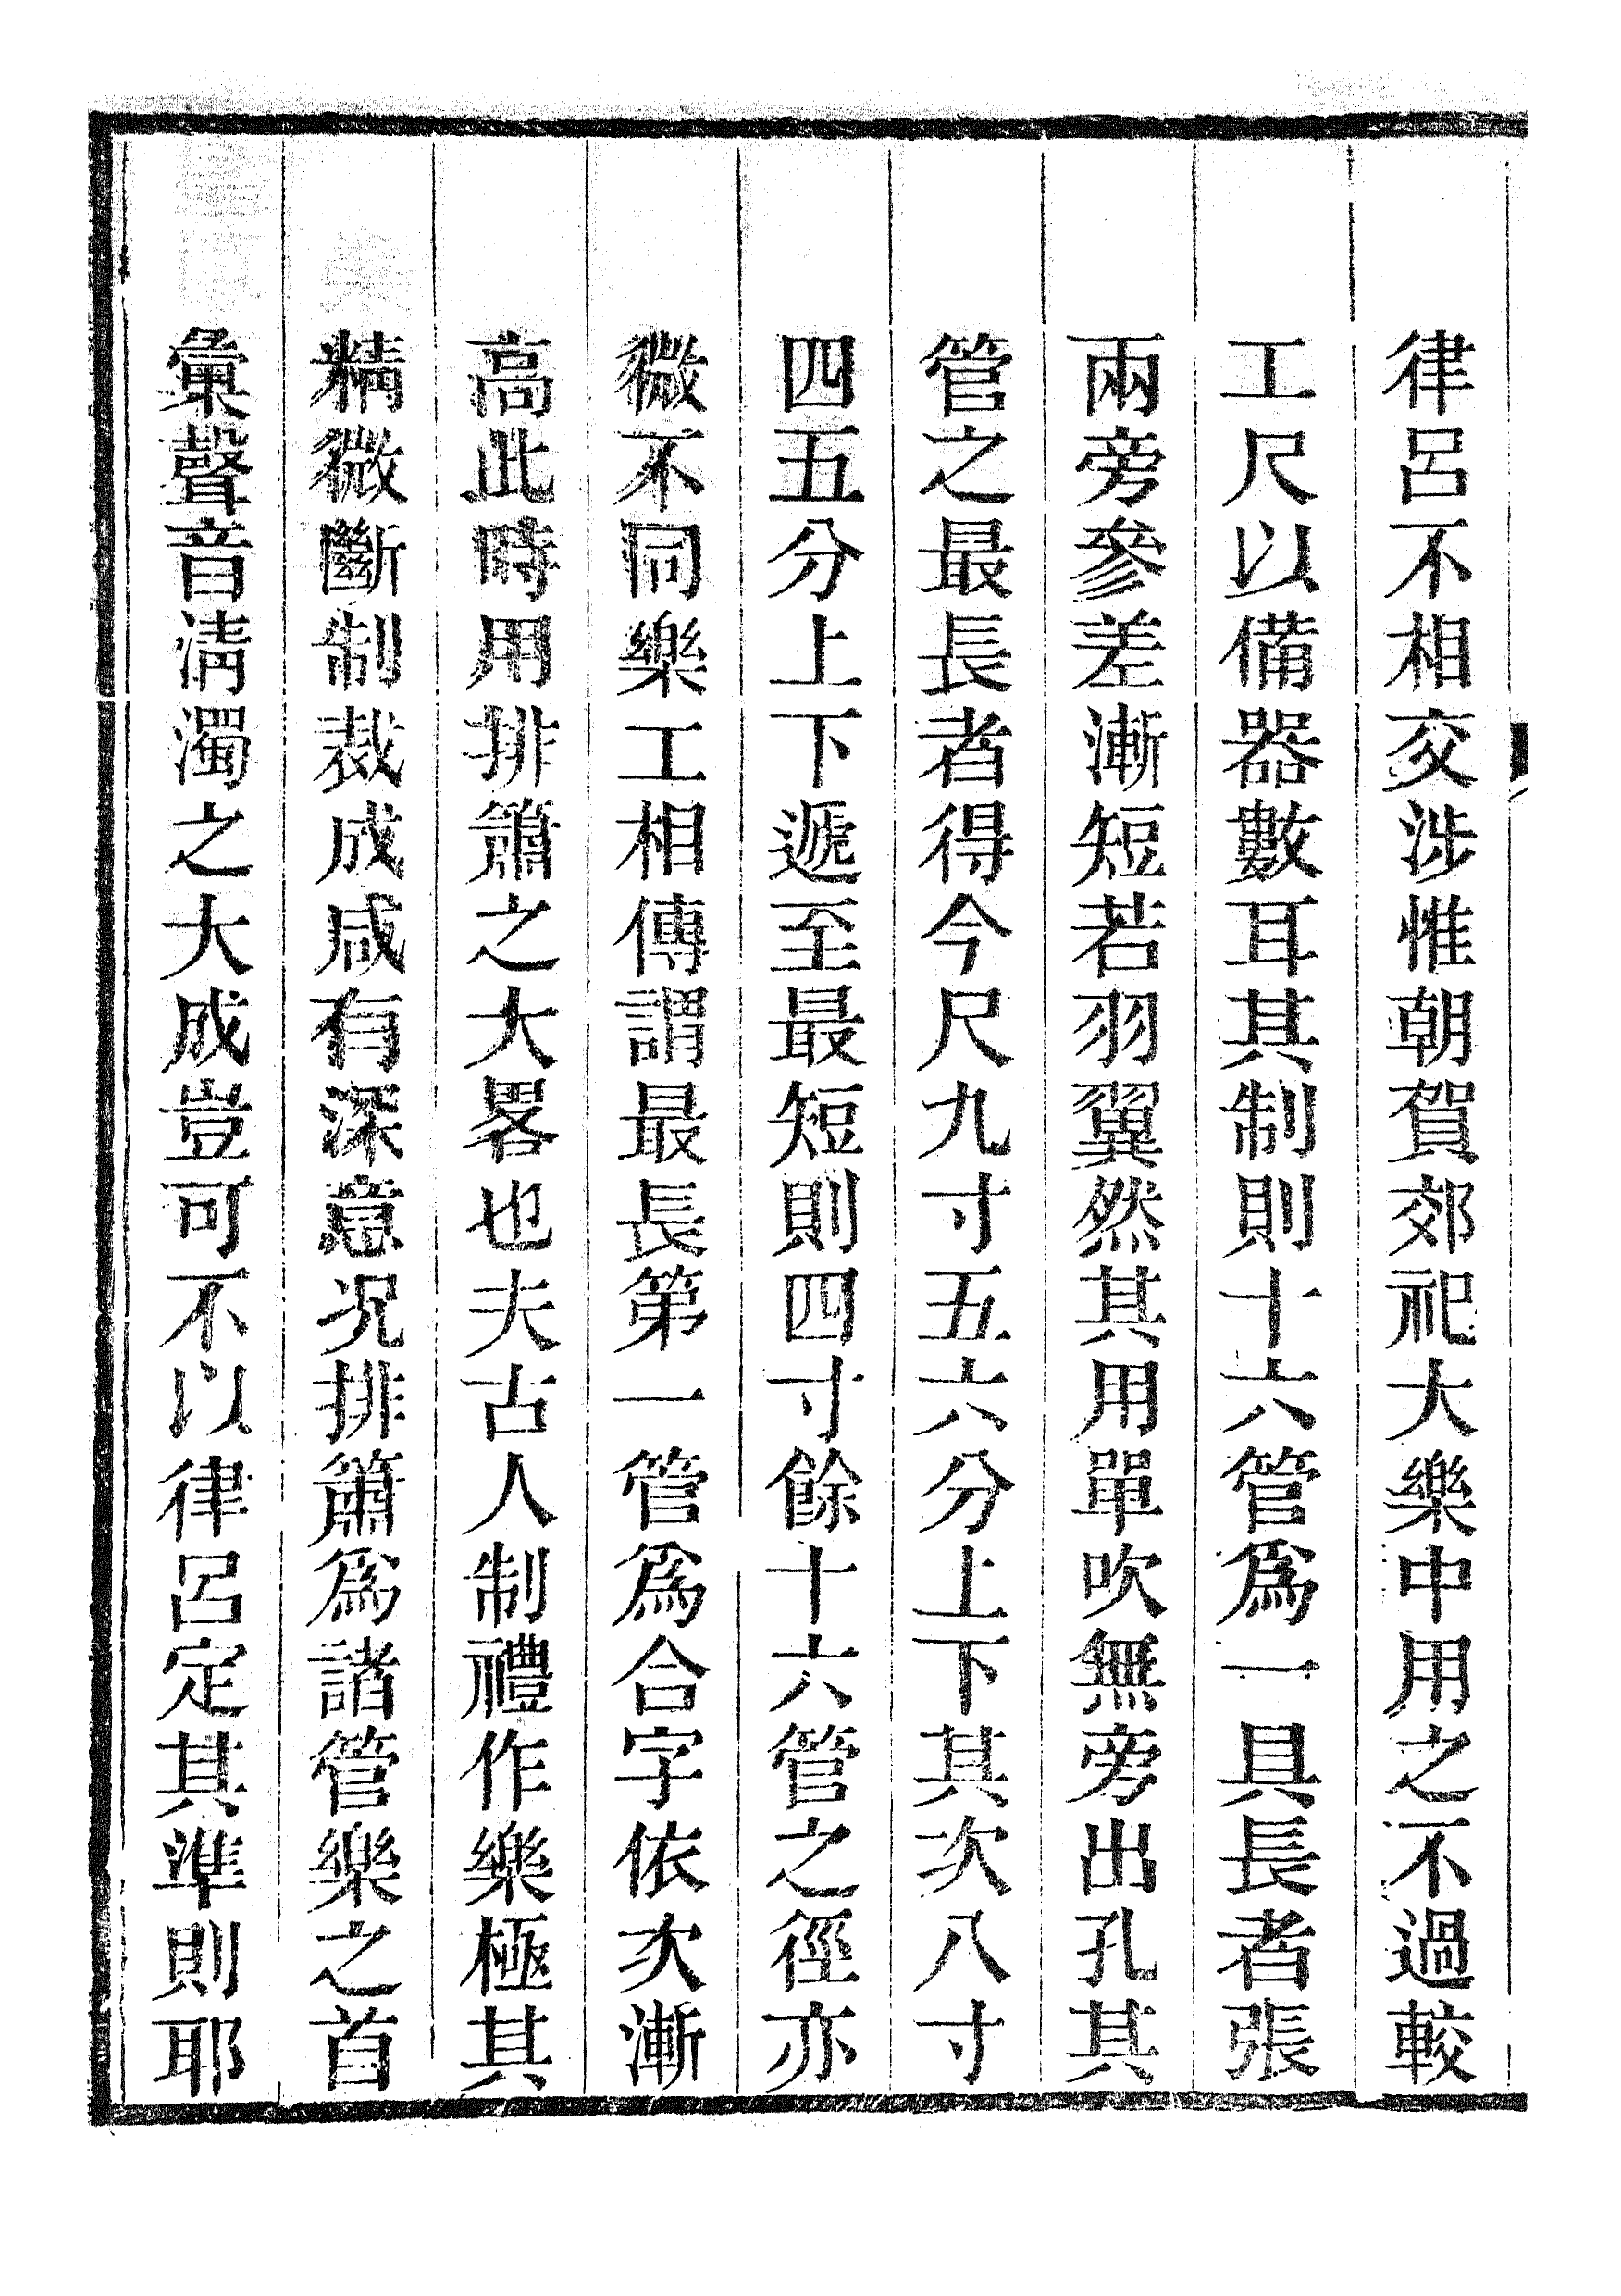 律呂不相交涉惟朝賀郊祀大樂中用之不過較
工尺以備器數耳其制則十六管爲一具長者張
兩旁參差漸短若羽翼然其用單吹無旁出孔其
管之最長者得今尺九寸五六分上下其次八寸
四五分上下遞至最短則四寸餘十六管之徑亦
微不同樂工相傳謂最長第一管爲合字依次漸
高此時用排簫之大畧也夫古人制禮作樂極其
精微斷制裁成咸有深意况排簫爲諸管樂之首
彙聲音淸濁之大成豈可不以律呂定其準則耶